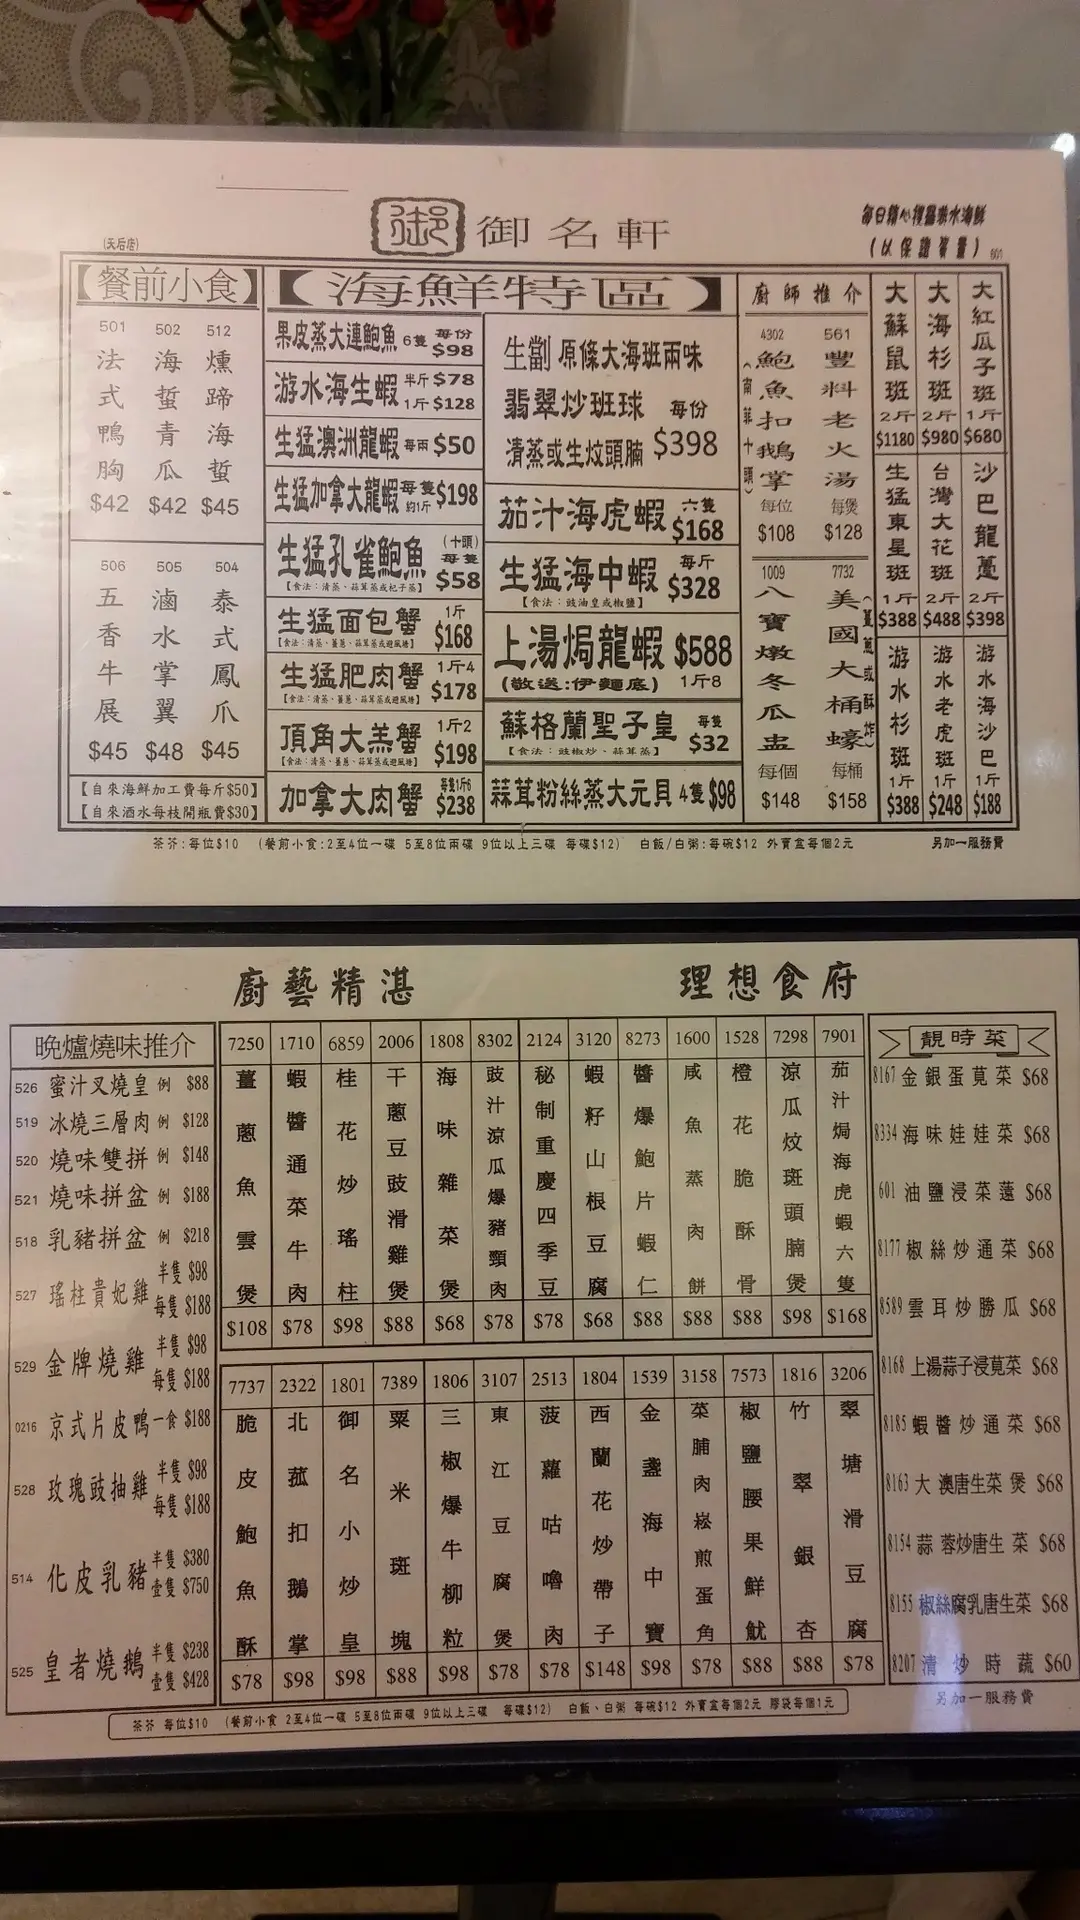 御 御名軒
(天后店)
(以保證質量) 601
【餐前小食】
501 法式鴨胸 $42
502 海蜇青瓜 $42
512 燻蹄海蜇 $45
506 五香牛展 $45
505 滷水掌翼 $48
504 泰式鳳爪 $45
【自來海鮮加工費每斤$50】
【自來酒水每枝開瓶費$30】
【海鮮特區】
果皮蒸大連鮑魚 6隻 每份 $98
游水海生蝦 半斤 $78 1斤 $128
生猛澳洲龍蝦 每兩 $50
生猛加拿大龍蝦 每隻 約1斤 $198
生猛孔雀鮑魚 (十頭) 每隻 $58
【食法：清蒸、蒜茸蒸或杞子蒸】
生猛面包蟹 1斤 $168
【食法：清蒸、薑蔥、蒜茸蒸或避風塘】
生猛肥肉蟹 1斤4 $178
【食法：清蒸、薑蔥、蒜茸蒸或避風塘】
頂角大羔蟹 1斤2 $198
【食法：清蒸、薑蔥、蒜茸蒸或避風塘】
加拿大肉蟹 每隻1斤6 $238
生劏原條大海班兩味
翡翠炒班球 每份
清蒸或生炆頭腩 $398
茄汁海虎蝦 六隻 $168
生猛海中蝦 每斤 $328
【食法：豉油皇或椒鹽】
上湯焗龍蝦 $588
(敬送:伊麵底) 1斤8
蘇格蘭聖子皇 每隻 $32
【食法：豉椒炒、蒜茸蒸】
蒜茸粉絲蒸大元貝 4隻 $98
廚師推介
4302 鮑魚扣鵝掌 (南菲十頭) 每位 $108
561 豐料老火湯 每煲 $128
1009 八寶燉冬瓜盅 每個 $148
7732 美國大桶蠔 (薑蔥或酥炸) 每桶 $158
大蘇鼠斑 2斤 $1180
大海杉斑 2斤 $980
大紅瓜子斑 1斤 $680
生猛東星斑 1斤 $388
台灣大花斑 2斤 $488
沙巴龍躉 2斤 $398
游水杉斑 1斤 $388
游水老虎斑 1斤 $248
游水海沙巴 1斤 $188
茶芥:每位$10 (餐前小食:2至4位一碟 5至8位兩碟 9位以上三碟 每碟$12) 白飯/白粥:每碗$12 外賣盒每個2元 另加一服務費
廚藝精湛 理想食府
晚爐燒味推介
526 蜜汁叉燒皇 例 $88
519 冰燒三層肉 例 $128
520 燒味雙拼 例 $148
521 燒味拼盆 例 $188
518 乳豬拼盆 例 $218
527 瑤柱貴妃雞 半隻 $98 每隻 $188
529 金牌燒雞 半隻 $98 每隻 $188
0216 京式片皮鴨 一食 $188
528 玫瑰豉抽雞 半隻 $98 每隻 $188
514 化皮乳豬 半隻 $380 壹隻 $750
525 皇者燒鵝 半隻 $238 壹隻 $428
7250 薑蔥魚雲煲 $108
1710 蝦醬通菜牛肉 $78
6859 桂花炒瑤柱 $98
2006 干蔥豆豉滑雞煲 $88
1808 海味雜菜煲 $68
8302 豉汁涼瓜爆豬頸肉 $78
2124 秘制重慶四季豆 $78
3120 蝦籽山根豆腐 $68
8273 醬爆鮑片蝦仁 $88
1600 咸魚蒸肉餅 $88
1528 橙花脆酥骨 $88
7298 涼瓜炆斑頭腩煲 $98
7901 茄汁焗海虎蝦六隻 $168
7737 脆皮鮑魚酥 $78
2322 北菰扣鵝掌 $98
1801 御名小炒皇 $98
7389 粟米斑塊 $88
1806 三椒爆牛柳粒 $98
3107 東江豆腐煲 $78
2513 菠蘿咕嚕肉 $78
1804 西蘭花炒帶子 $148
1539 金盞海中寶 $98
3158 菜脯肉崧煎蛋角 $78
7573 椒鹽腰果鮮魷 $88
1816 竹翠銀杏 $88
3206 翠塘滑豆腐 $78
靚時菜
8167 金銀蛋莧菜 $68
8334 海味娃娃菜 $68
601 油鹽浸菜薳 $68
8177 椒絲炒通菜 $68
8589 雲耳炒勝瓜 $68
8168 上湯蒜子浸莧菜 $68
8185 蝦醬炒通菜 $68
8163 大澳唐生菜煲 $68
8154 蒜蓉炒唐生菜 $68
8155 椒絲腐乳唐生菜 $68
8207 清炒時蔬 $60
另加一服務費
茶芥 每位$10 (餐前小食 2至4位一碟 5至8位兩碟 9位以上三碟 每碟$12) 白飯、白粥 每碗$12 外賣盒每個2元 膠袋每個1元